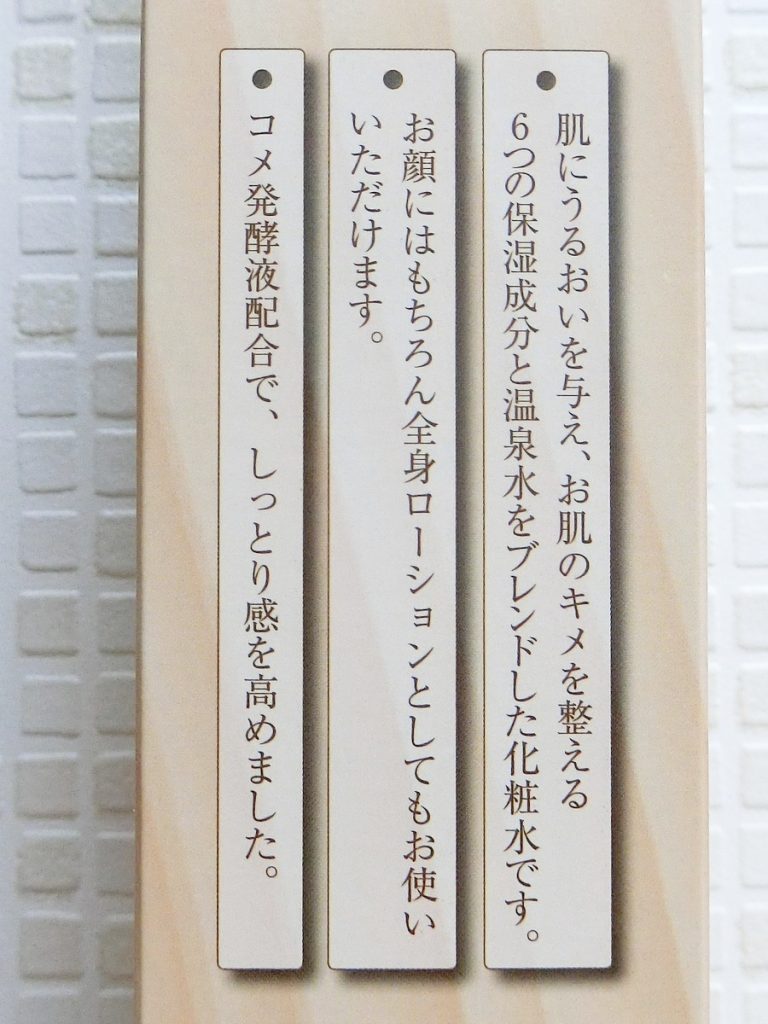 肌にうるおいを与え、お肌のキメを整える
6つの保湿成分と温泉水をブレンドした化粧水です。
お顔にはもちろん全身ローションとしてもお使い
いただけます。
コメ発酵液配合で、しっとり感を高めました。